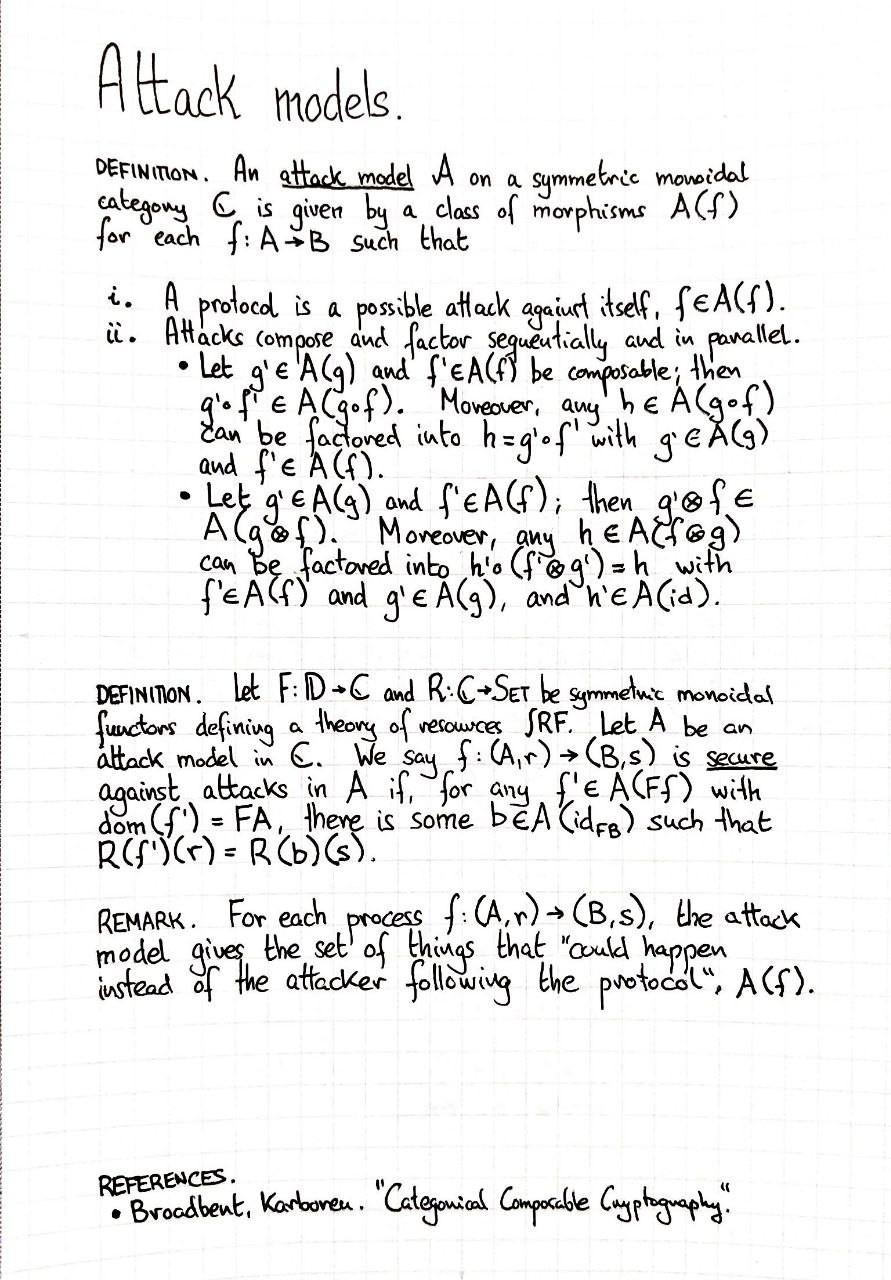 Attack models.
DEFINITION. An attack model A on a symmetric monoidal
category ℂ is given by a class of morphisms A(f)
for each f: A→B such that
i. A protocol is a possible attack against itself, f∈A(f).
ii. Attacks compose and factor sequentially and in parallel.
• Let g'∈A(g) and f'∈A(f) be composable; then
g'∘f' ∈ A(g∘f). Moreover, any h∈A(g∘f)
can be factored into h=g'∘f' with g'∈A(g)
and f'∈A(f).
• Let g'∈A(g) and f'∈A(f); then g'⊗f ∈
A(g⊗f). Moreover, any h∈A(f⊗g)
can be factored into h'∘(f'⊗g')=h with
f'∈A(f) and g'∈A(g), and h'∈A(id).
DEFINITION. Let F: 𝔻→ℂ and R: ℂ→SET be symmetric monoidal
functors defining a theory of resources ∫RF. Let A be an
attack model in ℂ. We say f: (A,r)→(B,s) is secure
against attacks in A if, for any f'∈A(Ff) with
dom(f') = FA, there is some b∈A(id_FB) such that
R(f')(r) = R(b)(s).
REMARK. For each process f: (A,r)→(B,s), the attack
model gives the set of things that "could happen
instead of the attacker following the protocol", A(f).
REFERENCES.
• Broadbent, Karvonen. "Categorical Composable Cryptography."